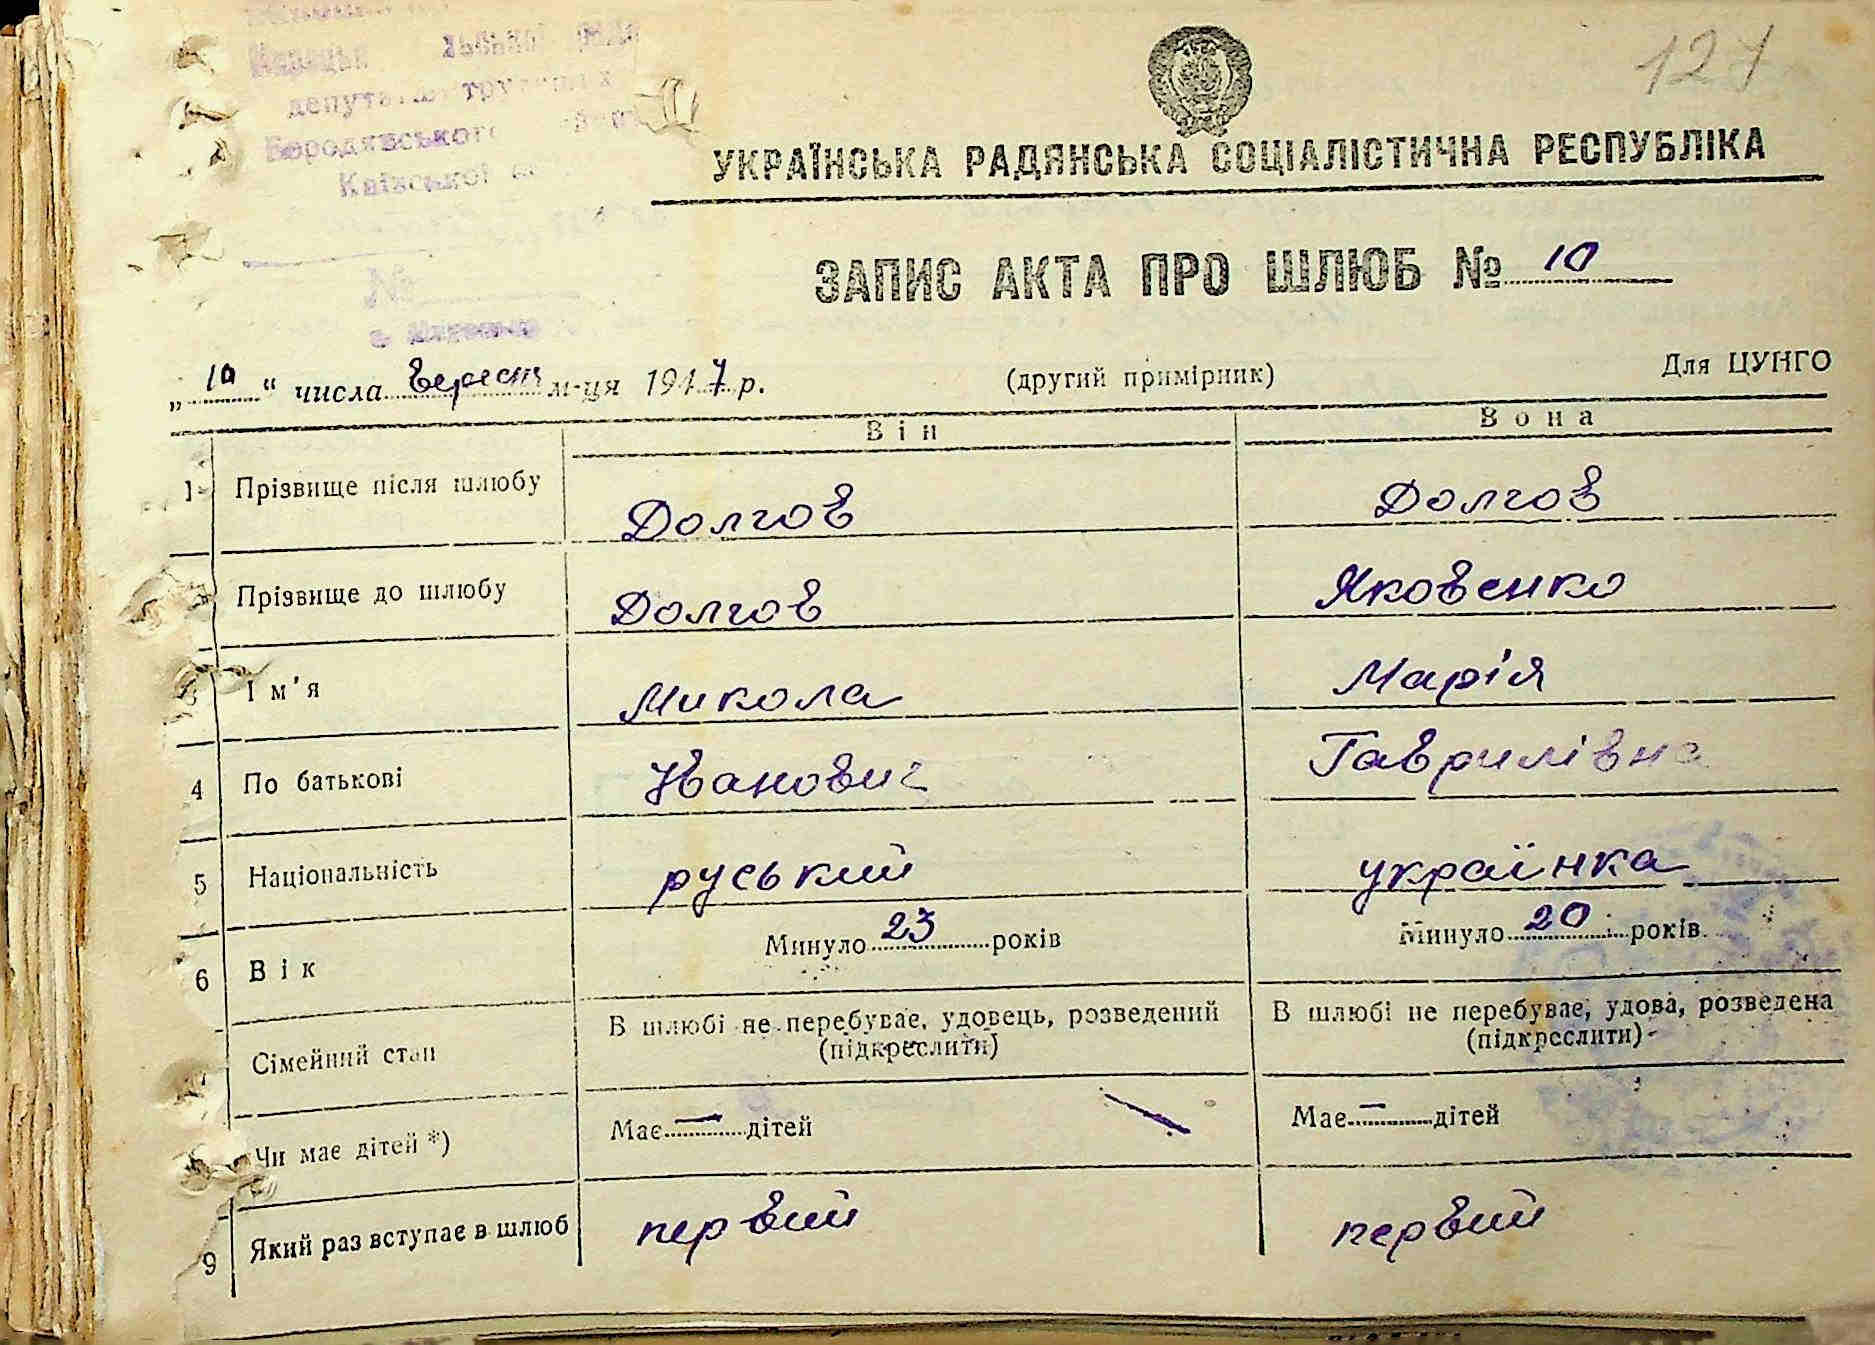 депута трудящих
Бородянського
Київської
№
127
УКРАЇНСЬКА РАДЯНСЬКА СОЦІАЛІСТИЧНА РЕСПУБЛІКА
ЗАПИС АКТА ПРО ШЛЮБ № 10
„10“ числа вересня м-ця 1947 р. (другий примірник) Для ЦУНГО
Він Вона
1 Прізвище після шлюбу Долгов Долгов
Прізвище до шлюбу Долгов Яковенко
3 Ім'я Микола Марія
4 По батькові Иванович Гаврилівна
5 Національність руський українка
6 Вік Минуло 23 років Минуло 20 років
Сімейний стан В шлюбі не перебуває, удовець, розведений В шлюбі не перебуває, удова, розведена
(підкреслити) (підкреслити)
Чи має дітей *) Має — дітей Має — дітей
9 Який раз вступає в шлюб первий первий